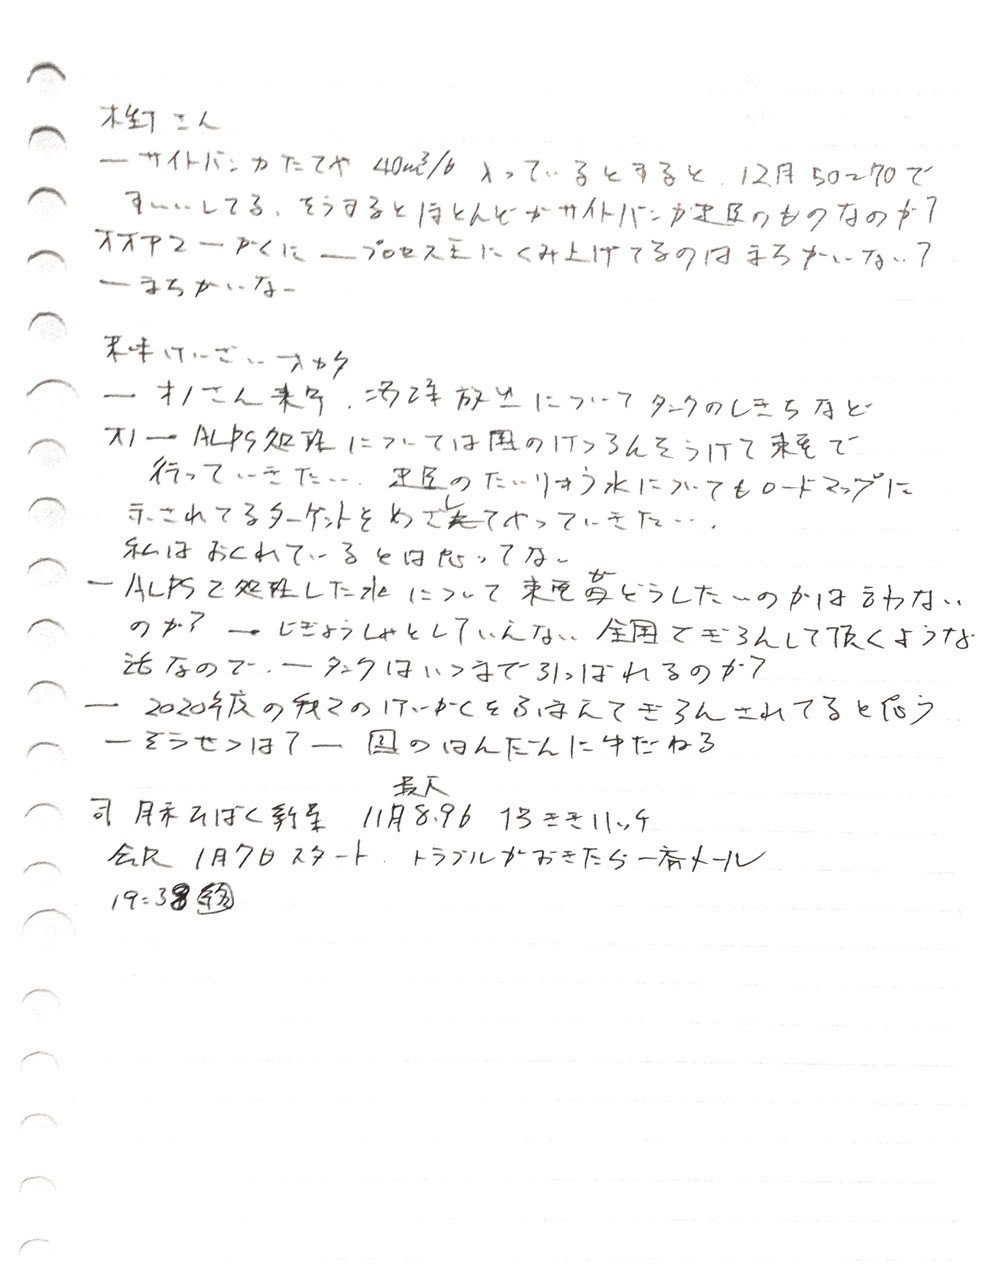 さん
ーサイトバンカたてや 40m³/b 入っているとすると、12月50〜70で
すいいしてる、そうするとほとんどがサイトバンカのものなのか？
ーかくに ープロセス主にくみ上げてるのはまちがいない？
ーまちがいない
けいざい オカダ
ーオノさん来年、放出についてタンクのしきちなど
オノーALPS処理については国のけつろんをうけて東電で
行っていきたい。のたいりゅう水についてもロードマップに
示されてるターゲットをめざしてやっていきたい。
私はおくれているとは思ってない
ーALPSで処理した水について東電がどうしたいのかは言わない
のか？ーじぎょうしゃとしていえない 全国でぎろんして頂くような
話なので、ータンクはいつまで引っぱれるのか？
ー2020年度の我々のけいかくをふまえてぎろんされてると思う
ーそうせつは？ー国のはんだんにゆだねる
最大
司 月末 11月8.96 1号
会見 1月7日スタート、トラブルがおきたら一斉メール
19:38 終